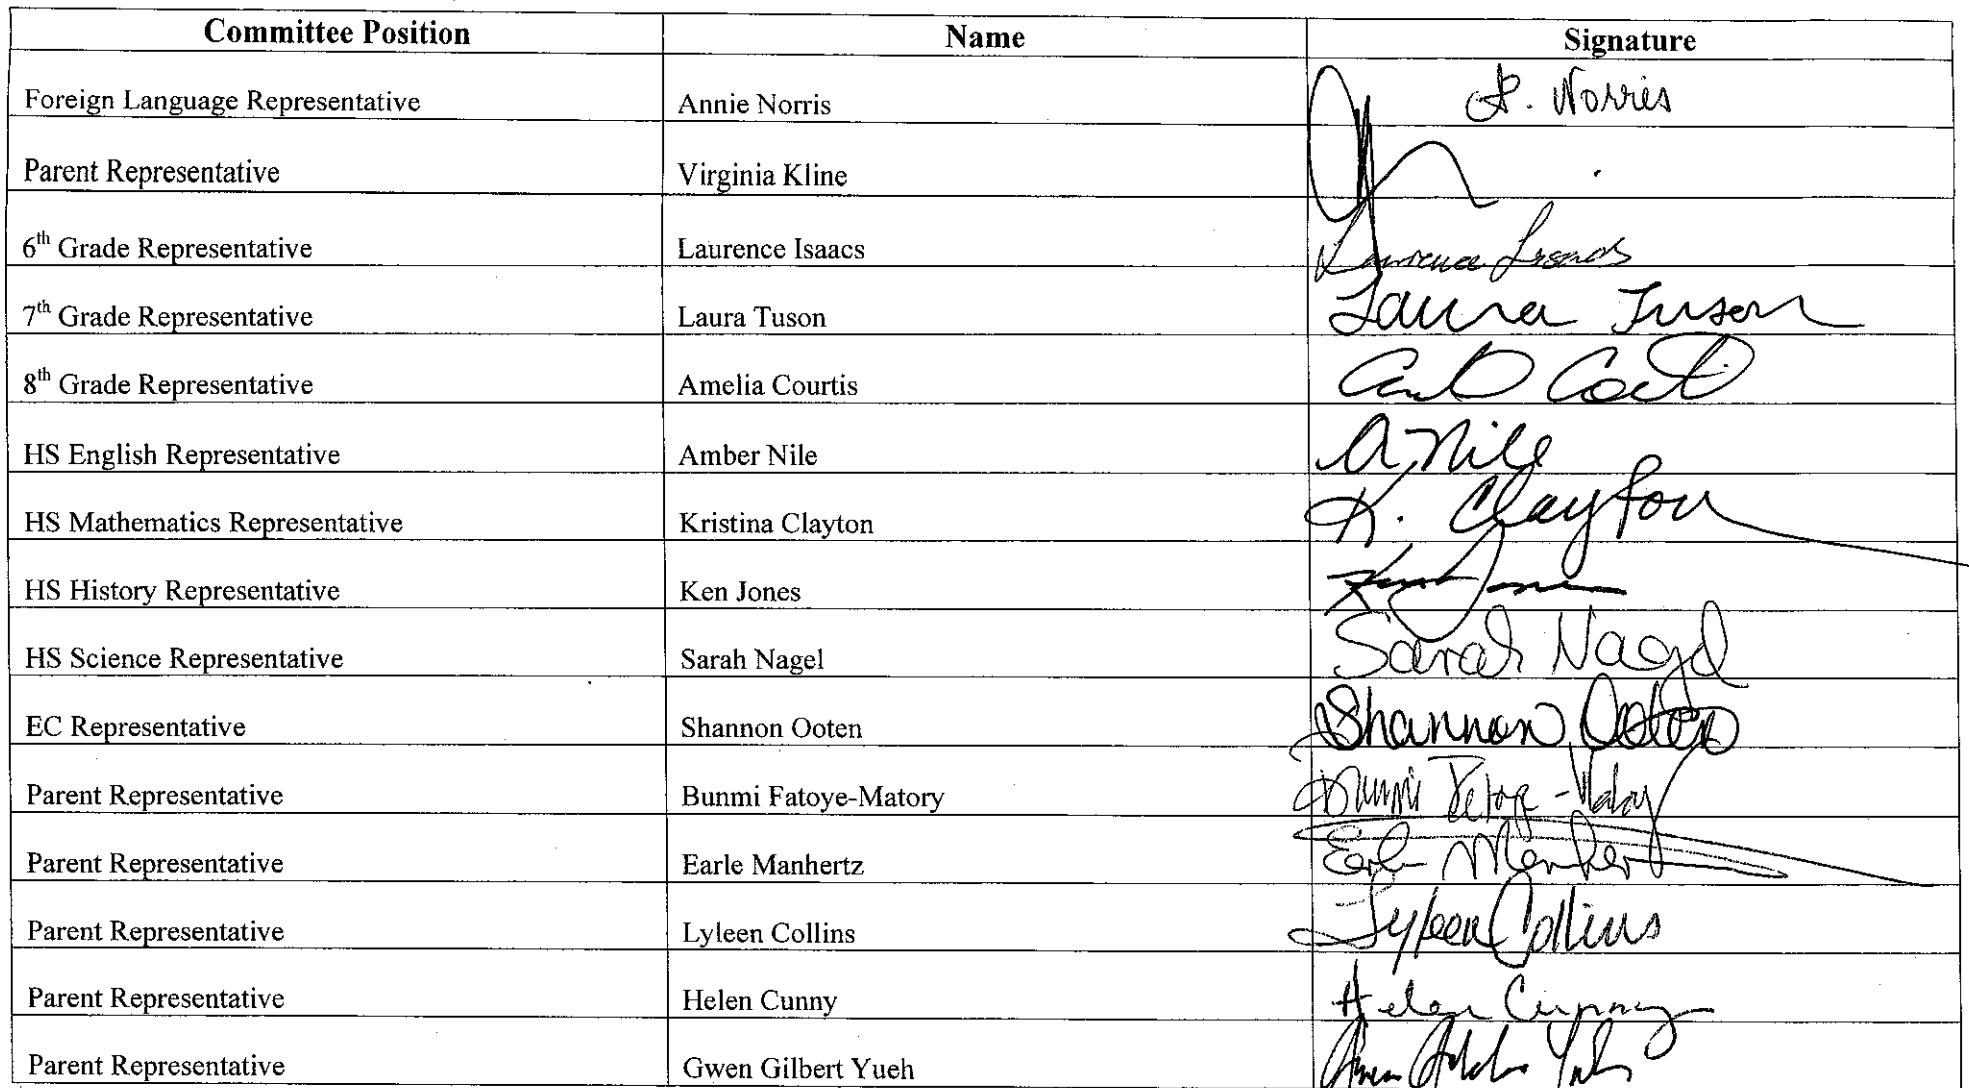 Committee Position Name Signature
Foreign Language Representative Annie Norris A. Norris
Parent Representative Virginia Kline
6th Grade Representative Laurence Isaacs Laurence Isaacs
7th Grade Representative Laura Tuson Laura Tuson
8th Grade Representative Amelia Courtis
HS English Representative Amber Nile A. Nile
HS Mathematics Representative Kristina Clayton K. Clayton
HS History Representative Ken Jones
HS Science Representative Sarah Nagel Sarah Nagel
EC Representative Shannon Ooten Shannon Ooten
Parent Representative Bunmi Fatoye-Matory Bunmi Fatoye-Matory
Parent Representative Earle Manhertz Earle Manhertz
Parent Representative Lyleen Collins Lyleen Collins
Parent Representative Helen Cunny Helen Cunny
Parent Representative Gwen Gilbert Yueh